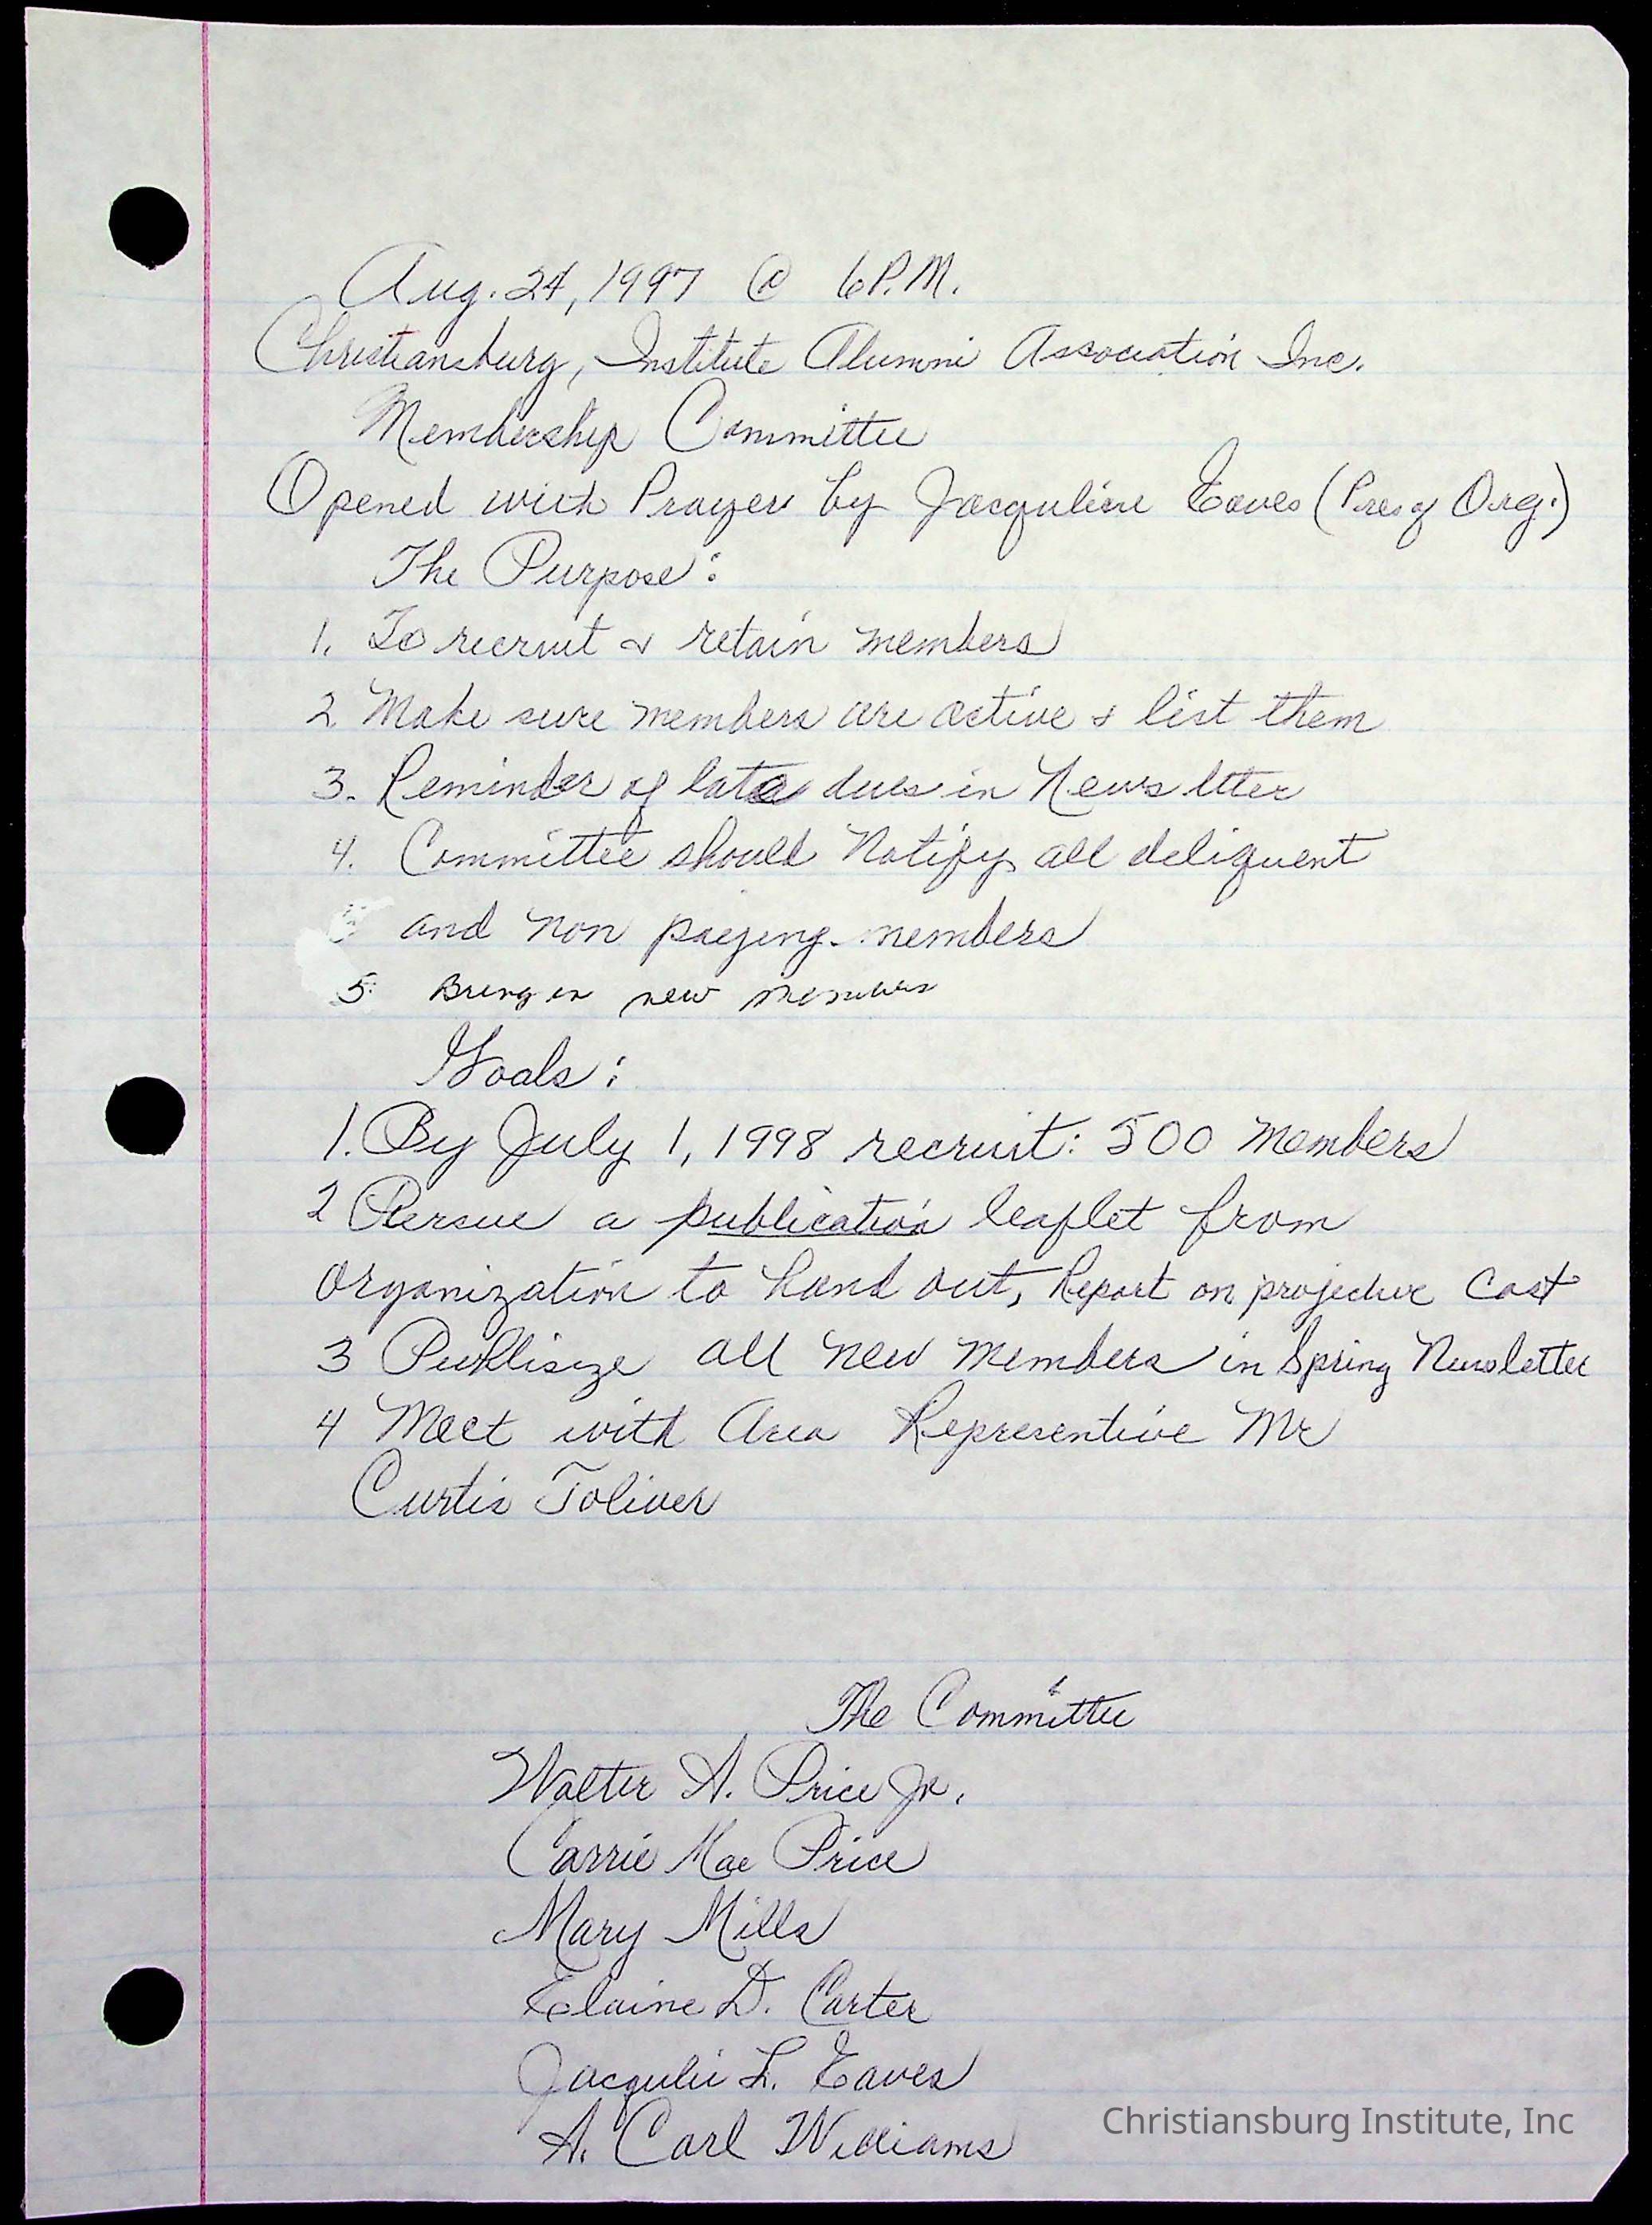 Aug. 24, 1997 @ 6 P.M.
Christiansburg, Institute Alumni Association Inc.
Membership Committee
Opened with Prayer by Jacquline Eaves (Pres of Org.)
The Purpose:
1. To recruit & retain members
2. Make sure members are active & list them
3. Reminder of late dues in News letter
4. Committee should Notify all deliquent
and non paying members
5. Bring in new members
Goals:
1. By July 1, 1998 recruit: 500 members
2 Persue a publication leaflet from
organization to hand out, Report on projective Cost
3 Publisize all new members in Spring Newsletter
4 Meet with Area Representive Mr
Curtis Toliver
The Committee
Walter A. Price Jr.
Carrie Mae Price
Mary Mills
Elaine D. Carter
Jacqulie L. Eaves
A. Carl Williams
Christiansburg Institute, Inc